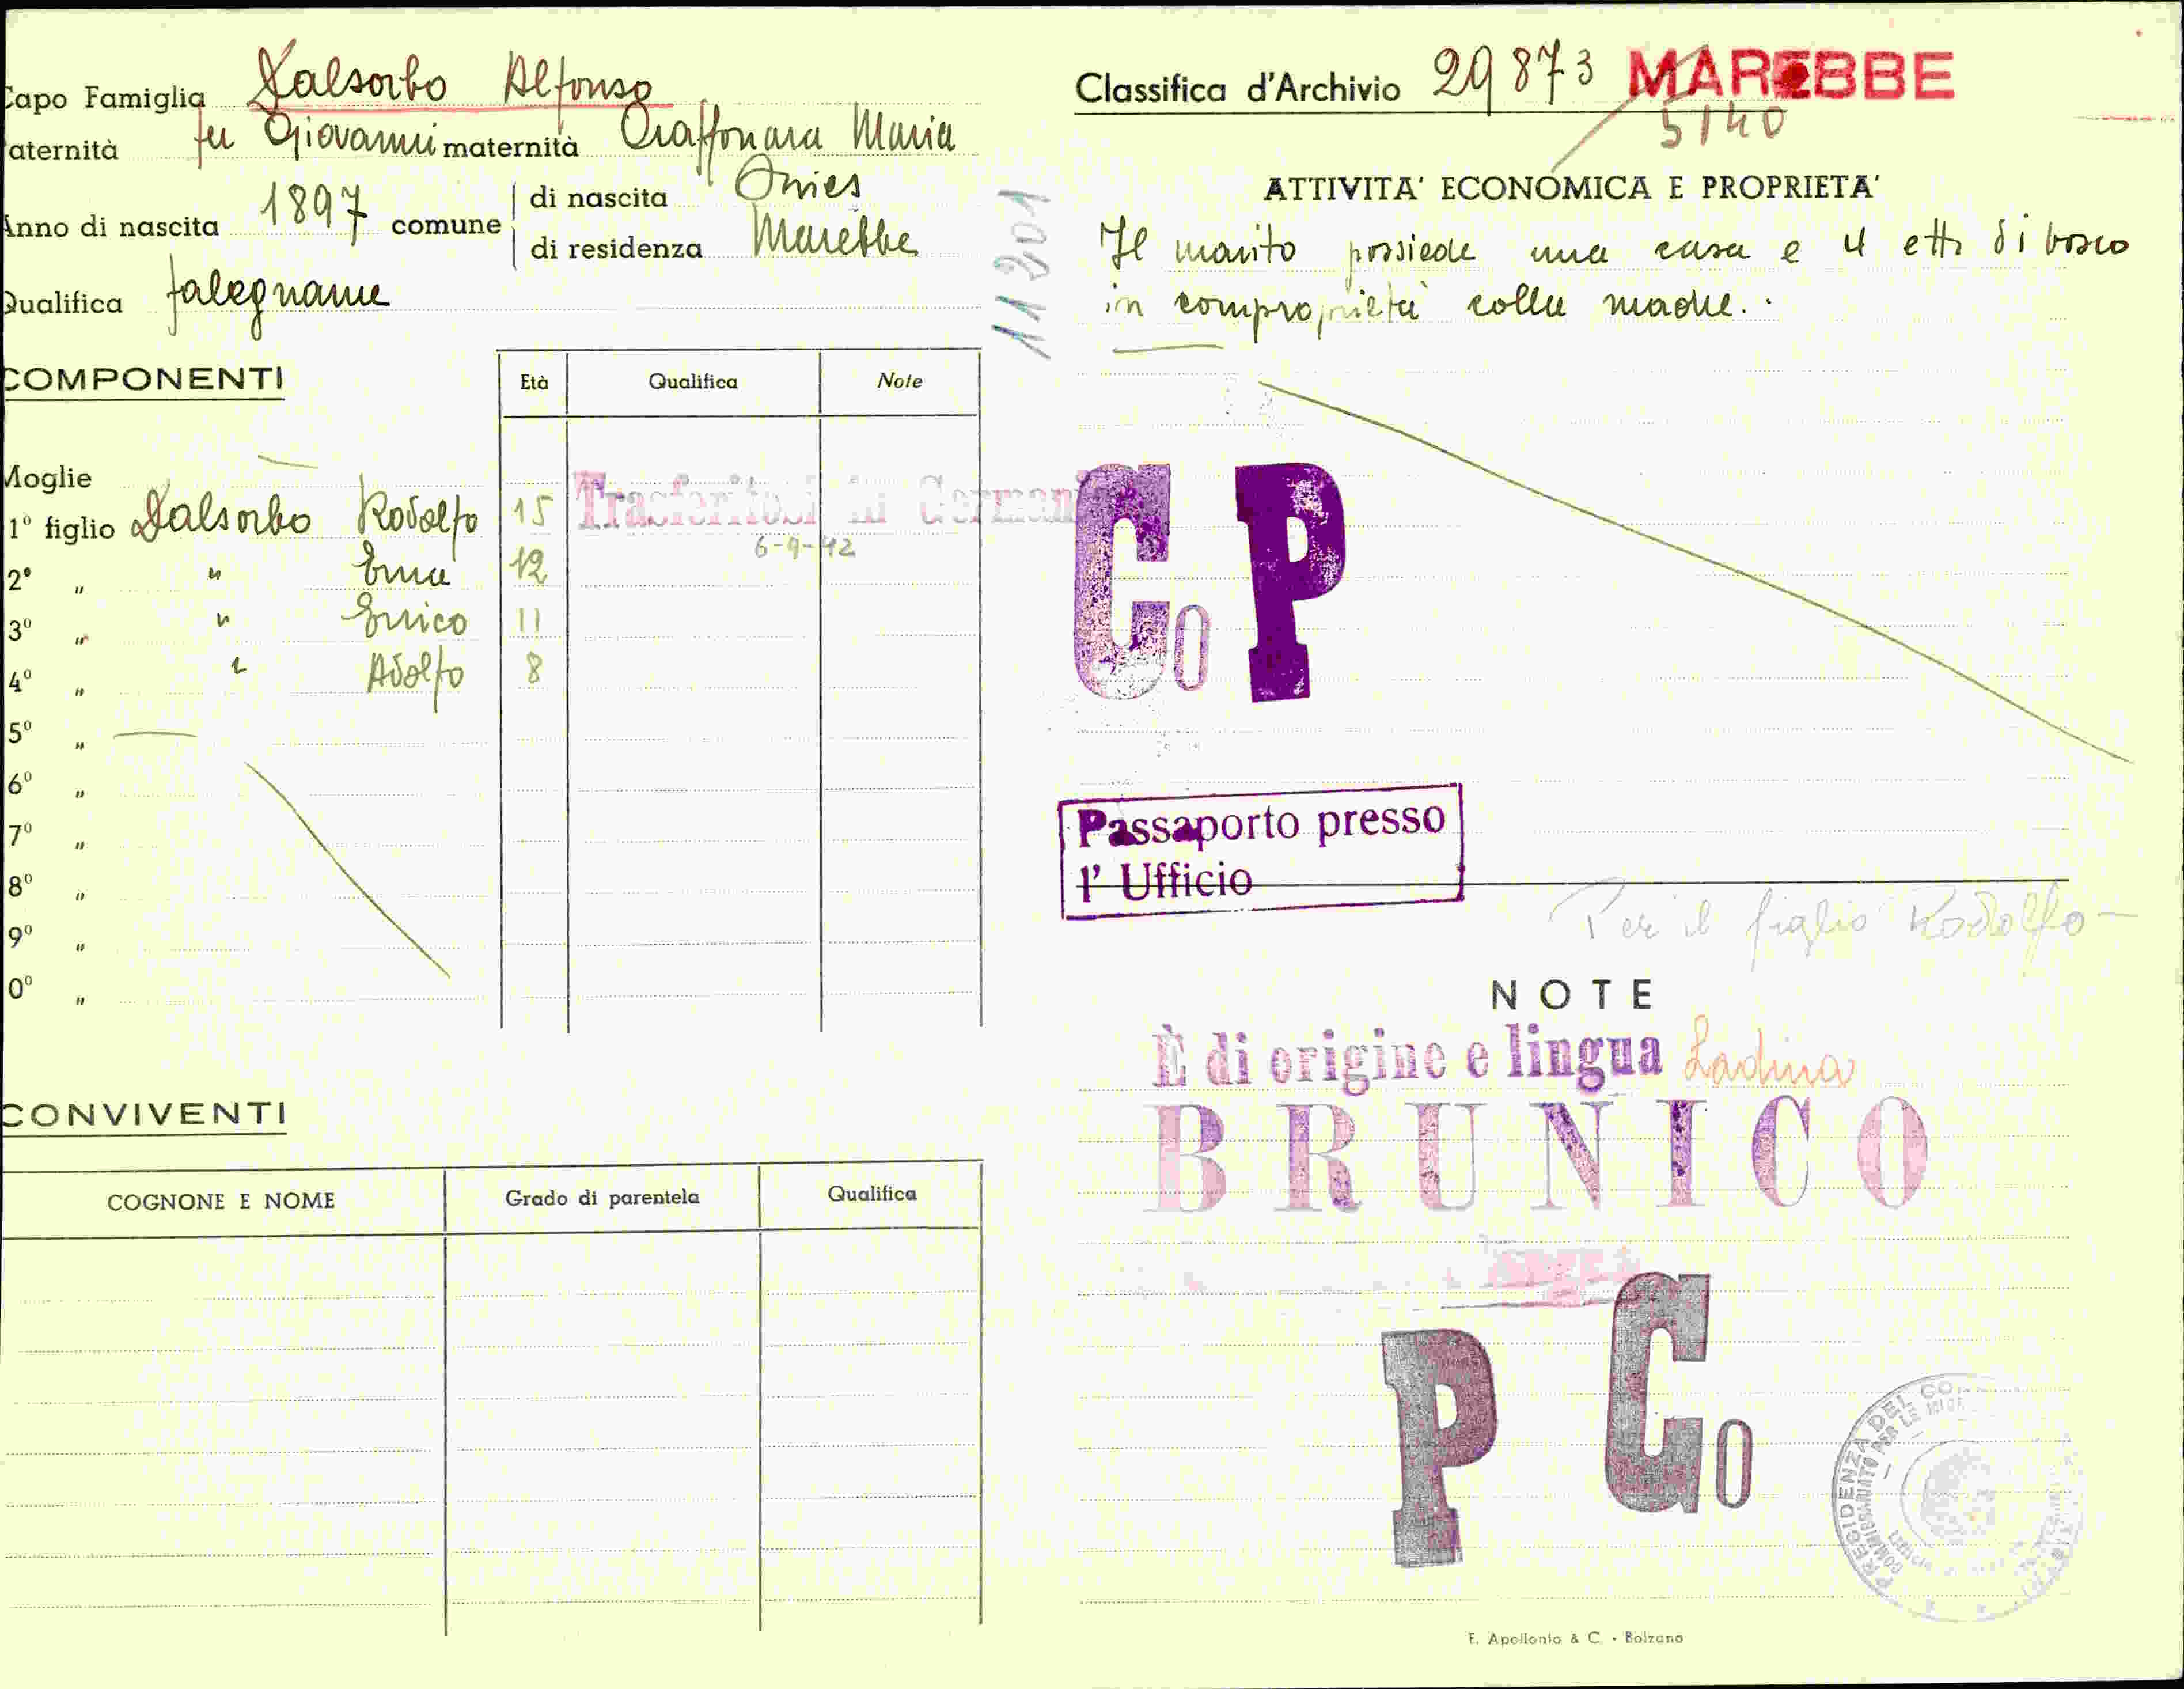 Capo Famiglia Dalsorbo Alfonso
aternità fu Giovanni maternità Craffonara Maria
Anno di nascita 1897 comune di nascita Onies
di residenza Marebbe
Qualifica falegname
COMPONENTI
Età Qualifica Note
Moglie
1º figlio Dalsorbo Rodolfo 15 Trasferitosi in Germani
6-9-42
2º " " Erna 12
3º " " Enrico 11
4º " " Adolfo 8
5º "
6º "
7º "
8º "
9º "
0º "
CONVIVENTI
COGNONE E NOME Grado di parentela Qualifica
11201
Classifica d'Archivio 29873 MAREBBE
5140
ATTIVITA' ECONOMICA E PROPRIETA'
Il marito possiede una casa e 4 etti di bosco
in comproprietà colla madre.
Co P
Passaporto presso
l' Ufficio
Per il figlio Rodolfo
NOTE
È di origine e lingua Ladina
BRUNICO
P Co
PRESIDENZA DEL CO
COMMISSARIATO PER LE MIGR
E. Apollonio & C. - Bolzano